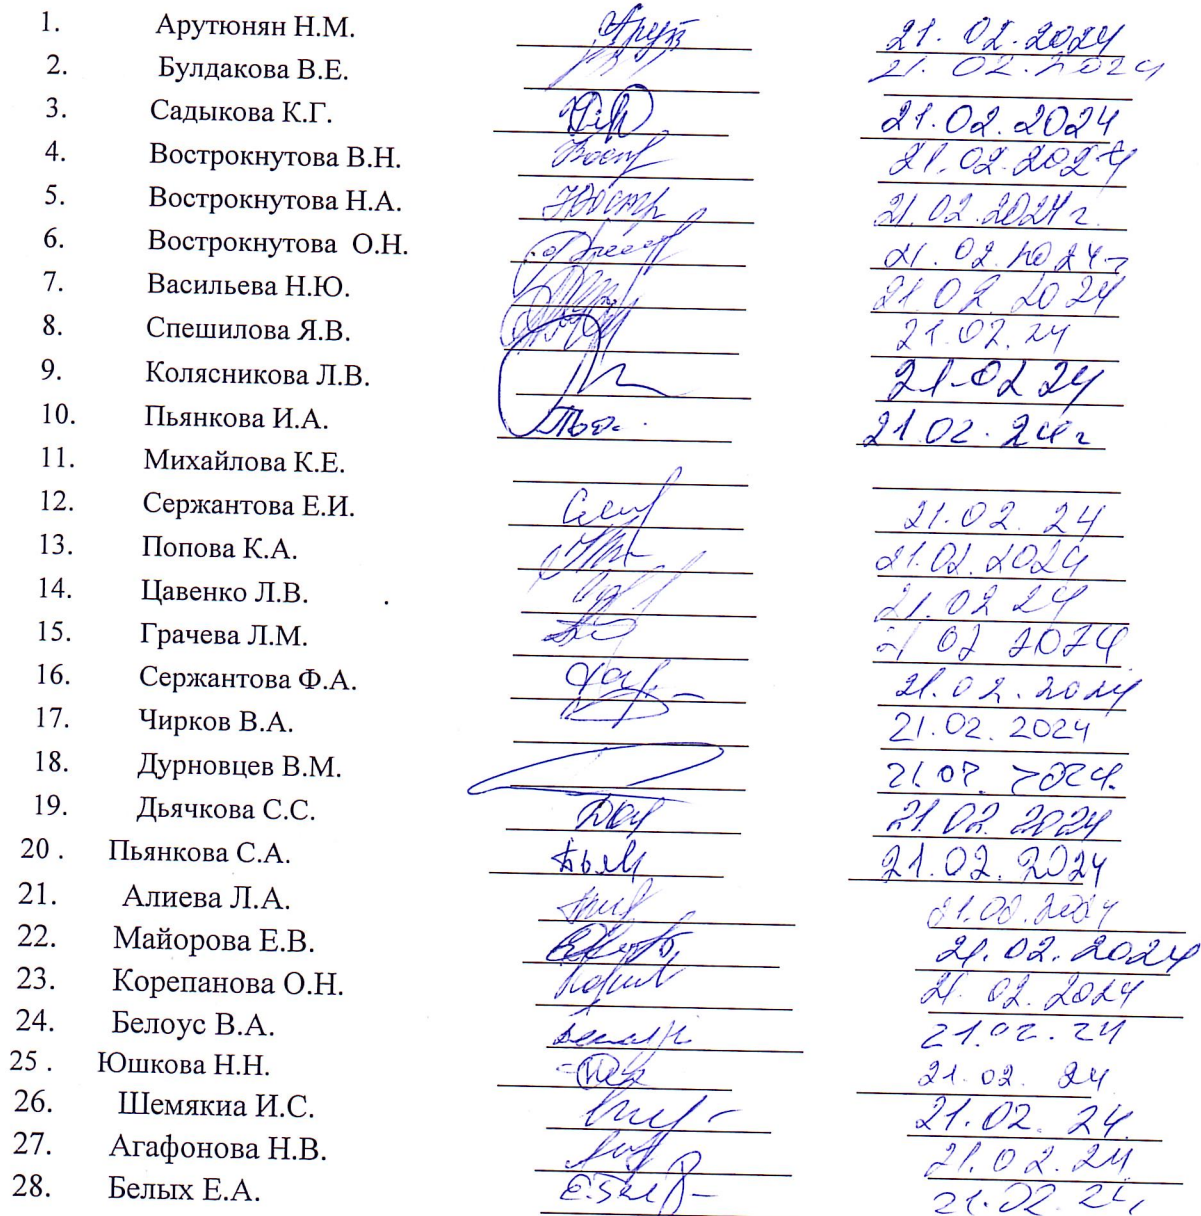 1. Арутюнян Н.М. 21.02.2024
2. Булдакова В.Е. 21.02.2024
3. Садыкова К.Г. 21.02.2024
4. Вострокнутова В.Н. 21.02.2024
5. Вострокнутова Н.А. 21.02.2024 г.
6. Вострокнутова О.Н. 21.02.2024 г
7. Васильева Н.Ю. 21.02.2024
8. Спешилова Я.В. 21.02.24
9. Колясникова Л.В. 21.02 24
10. Пьянкова И.А. 21.02.24 г
11. Михайлова К.Е.
12. Сержантова Е.И. 21.02.24
13. Попова К.А. 21.02.2024
14. Цавенко Л.В. 21.02 24
15. Грачева Л.М. 21 02 2024
16. Сержантова Ф.А. 21.02.2024
17. Чирков В.А. 21.02.2024
18. Дурновцев В.М. 21.02.2024.
19. Дьячкова С.С. 21.02.2024
20 . Пьянкова С.А. 21.02.2024
21. Алиева Л.А. 21.02.2024
22. Майорова Е.В. 21.02.2024
23. Корепанова О.Н. 21.02.2024
24. Белоус В.А. 21.02.24
25 . Юшкова Н.Н. 21.02.24
26. Шемякиа И.С. 21.02.24.
27. Агафонова Н.В. 21.02.24
28. Белых Е.А. 21.02.24